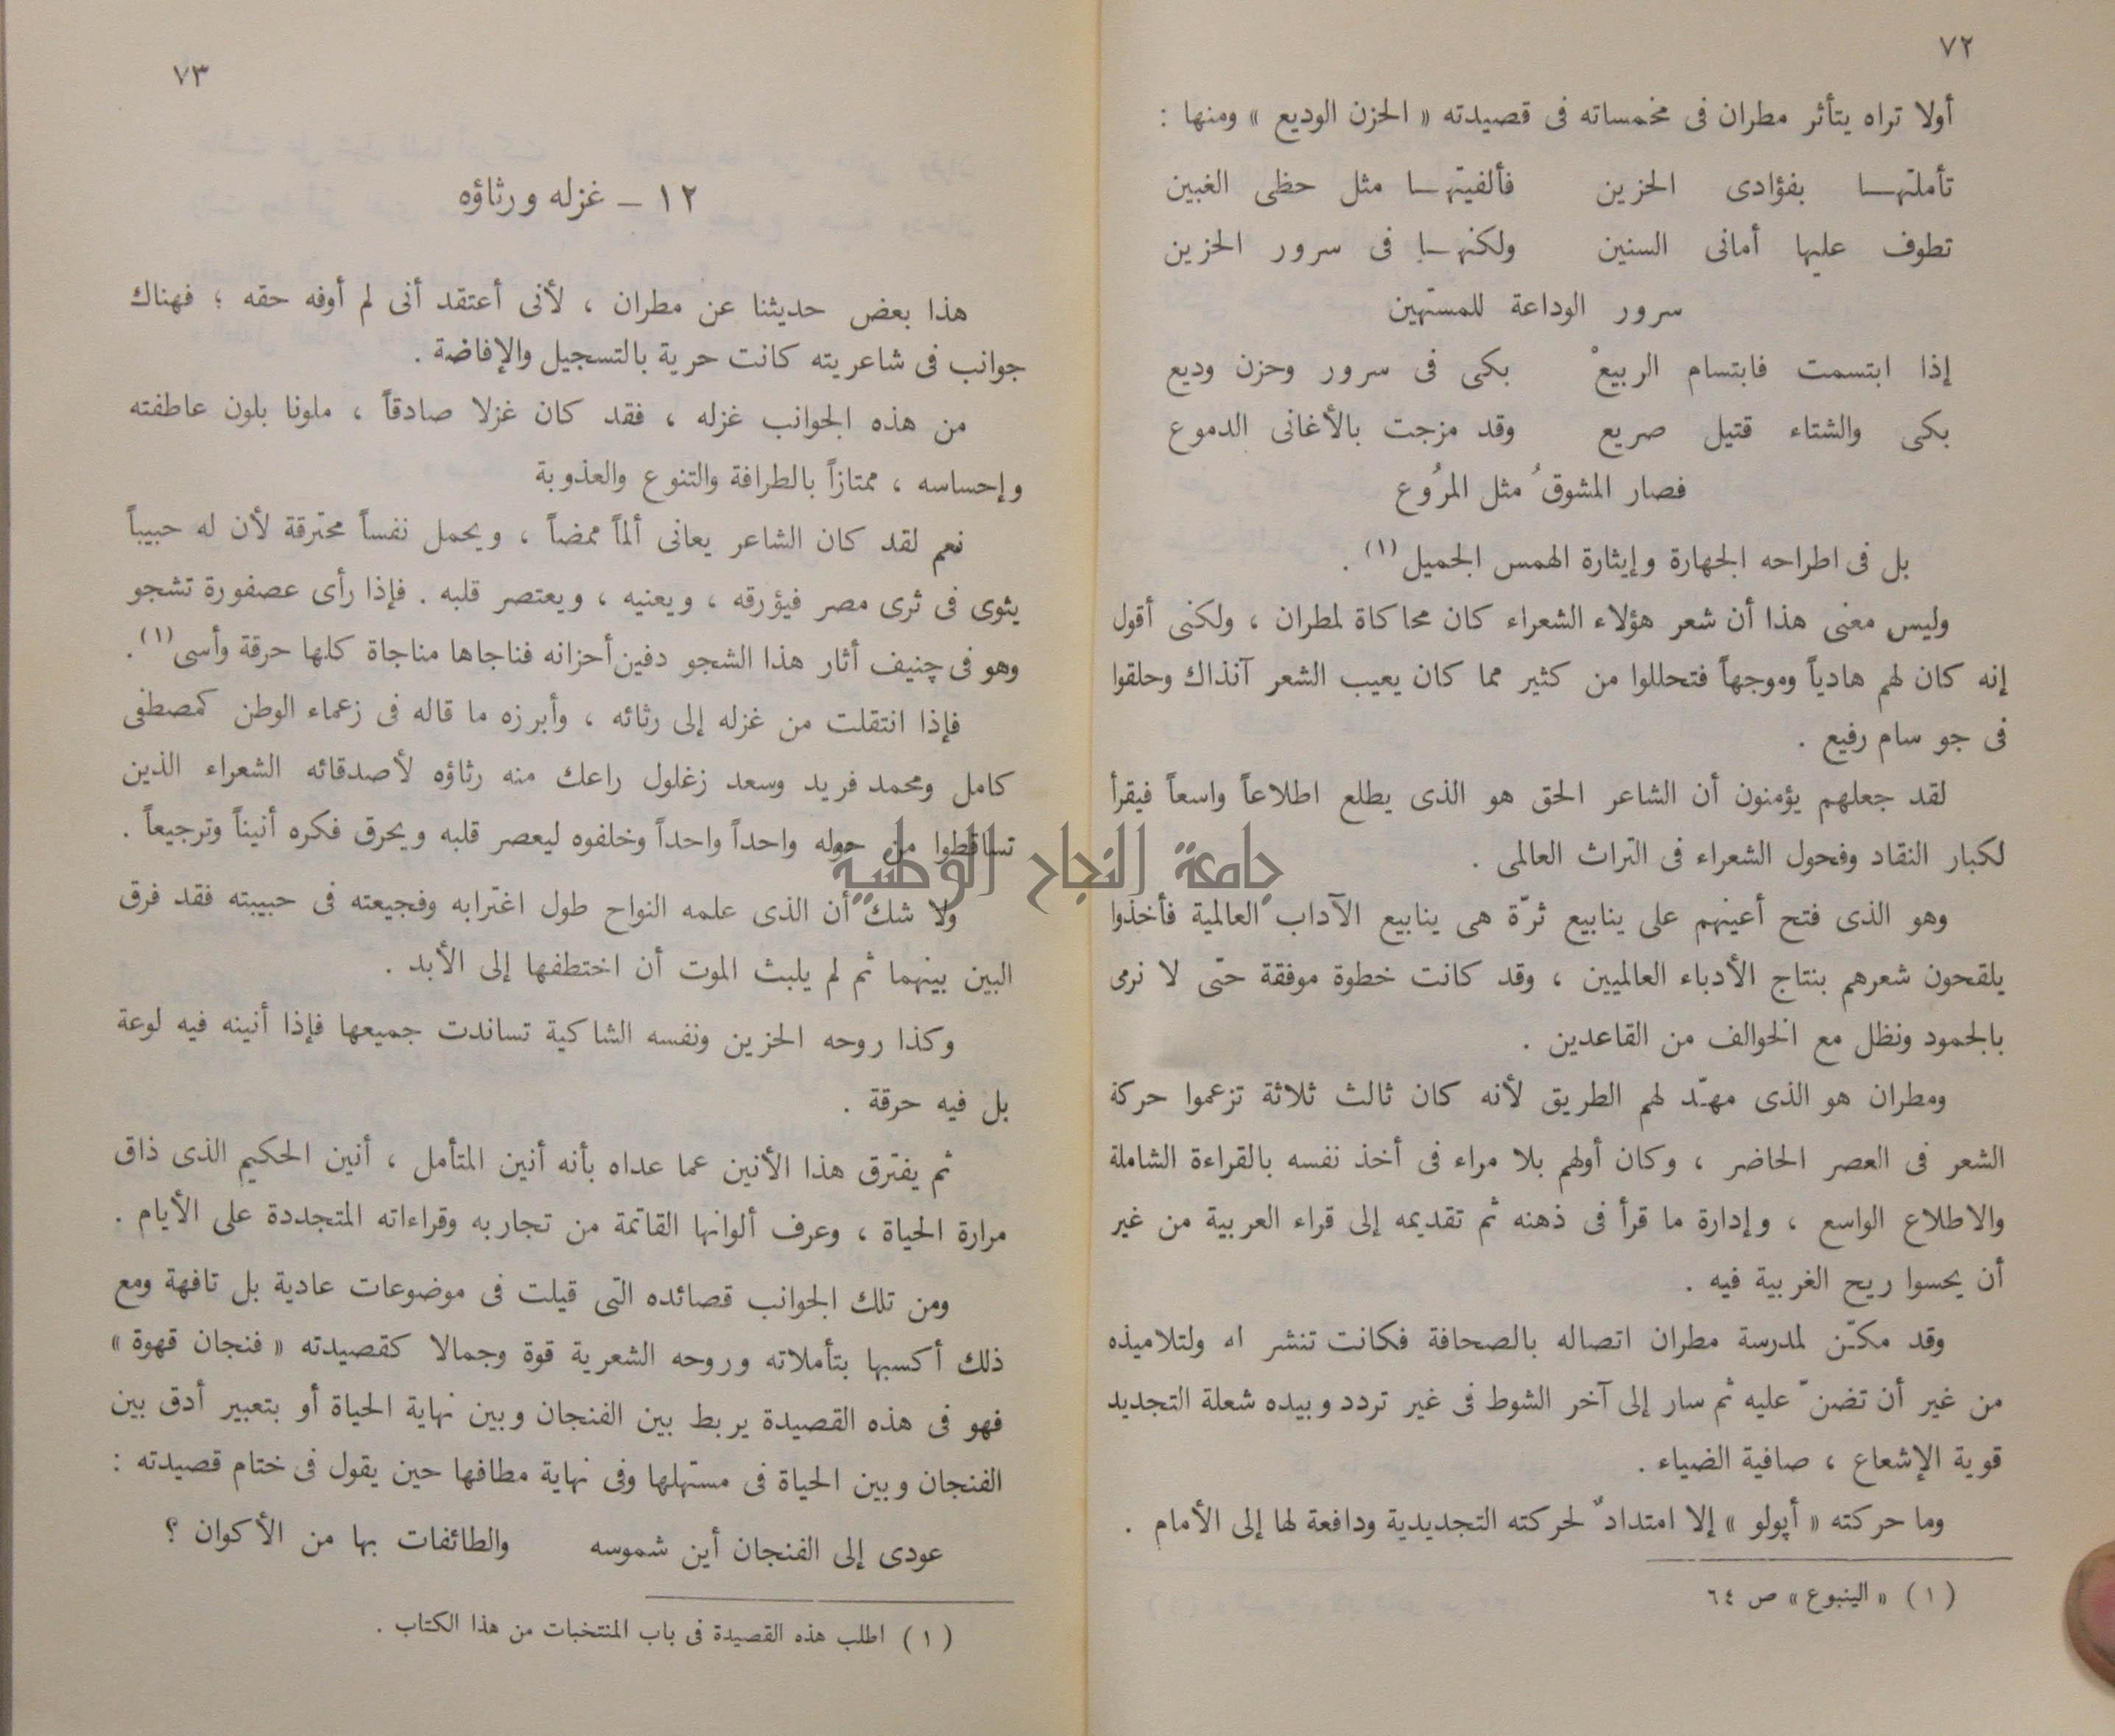 ٧٢
أولا تراه يتأثر مطران فى مخمساته فى قصيدته « الحزن الوديع » ومنها :
تأملتهـا بفؤادى الحزين فألفيتهـا مثل حظى الغبين
تطوف عليها أمانى السنين ولكنهـا فى سرور الحزين
سرور الوداعة للمستهين
إذا ابتسمت فابتسام الربيعْ بكى فى سرور وحزن وديع
بكى والشتاء قتيل صريع وقد مزجت بالأغانى الدموع
فصار المشوقُ مثل المرُوع
بل فى اطراحه الجهارة وإيثارة الهمس الجميل (١) .
وليس معنى هذا أن شعر هؤلاء الشعراء كان محاكاة لمطران ، ولكنى أقول
إنه كان لهم هادياً وموجهاً فتحللوا من كثير مما كان يعيب الشعر آنذاك وحلقوا
فى جو سام رفيع .
لقد جعلهم يؤمنون أن الشاعر الحق هو الذى يطلع اطلاعاً واسعاً فيقرأ
لكبار النقاد وفحول الشعراء فى التراث العالمى .
وهو الذى فتح أعينهم على ينابيع ثرّة هى ينابيع الآداب العالمية فأخذوا
يلقحون شعرهم بنتاج الأدباء العالميين ، وقد كانت خطوة موفقة حتى لا نرمى
بالجمود ونظل مع الخوالف من القاعدين .
ومطران هو الذى مهـّد لهم الطريق لأنه كان ثالث ثلاثة تزعموا حركة
الشعر فى العصر الحاضر ، وكان أولهم بلا مراء فى أخذ نفسه بالقراءة الشاملة
والاطلاع الواسع ، وإدارة ما قرأ فى ذهنه ثم تقديمه إلى قراء العربية من غير
أن يحسوا ريح الغربية فيه .
وقد مكـّن لمدرسة مطران اتصاله بالصحافة فكانت تنشر له ولتلاميذه
من غير أن تضنّ عليه ثم سار إلى آخر الشوط فى غير تردد وبيده شعلة التجديد
قوية الإشعاع ، صافية الضياء .
وما حركته « أپولو » إلا امتدادٌ لحركته التجديدية ودافعة لها إلى الأمام .
(١) « الينبوع » ص ٦٤
٧٣
١٢ – غزله ورثاؤه
هذا بعض حديثنا عن مطران ، لأنى أعتقد أنى لم أوفه حقه ؛ فهناك
جوانب فى شاعريته كانت حرية بالتسجيل والإفاضة .
من هذه الجوانب غزله ، فقد كان غزلا صادقاً ، ملونا بلون عاطفته
وإحساسه ، ممتازاً بالطرافة والتنوع والعذوبة
نعم لقد كان الشاعر يعانى ألماً ممضاً ، ويحمل نفساً محترقة لأن له حبيباً
يثوى فى ثرى مصر فيؤرقه ، ويعنيه ، ويعتصر قلبه . فإذا رأى عصفورة تشجو
وهو فى چنيف أثار هذا الشجو دفين أحزانه فناجاها مناجاة كلها حرقة وأسى (١) .
فإذا انتقلت من غزله إلى رثائه ، وأبرزه ما قاله فى زعماء الوطن كمصطفى
كامل ومحمد فريد وسعد زغلول راعك منه رثاؤه لأصدقائه الشعراء الذين
تساقطوا من حوله واحداً واحداً وخلفوه ليعصر قلبه ويحرق فكره أنيناً وترجيعاً .
جامعة النجاح الوطنية
ولا شك أن الذى علمه النواح طول اغترابه وفجيعته فى حبيبته فقد فرق
البين بينهما ثم لم يلبث الموت أن اختطفها إلى الأبد .
وكذا روحه الحزين ونفسه الشاكية تساندت جميعها فإذا أنينه فيه لوعة
بل فيه حرقة .
ثم يفترق هذا الأنين عما عداه بأنه أنين المتأمل ، أنين الحكيم الذى ذاق
مرارة الحياة ، وعرف ألوانها القاتمة من تجاربه وقراءاته المتجددة على الأيام .
ومن تلك الجوانب قصائده التى قيلت فى موضوعات عادية بل تافهة ومع
ذلك أكسبها بتأملاته وروحه الشعرية قوة وجمالا كقصيدته « فنجان قهوة »
فهو فى هذه القصيدة يربط بين الفنجان وبين نهاية الحياة أو بتعبير أدق بين
الفنجان وبين الحياة فى مستهلها وفى نهاية مطافها حين يقول فى ختام قصيدته :
عودى إلى الفنجان أين شموسه والطائفات بها من الأكوان ؟
(١) اطلب هذه القصيدة فى باب المنتخبات من هذا الكتاب .